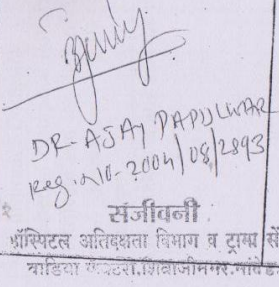 DR. AJAY PAPDULWAR
Reg. No. 2004/08/2893
संजीवनी
हॉस्पिटल अतिदक्षता विभाग व ट्रामा सें
वाडिया फॅक्टरी, शिवाजीनगर, नांदेड